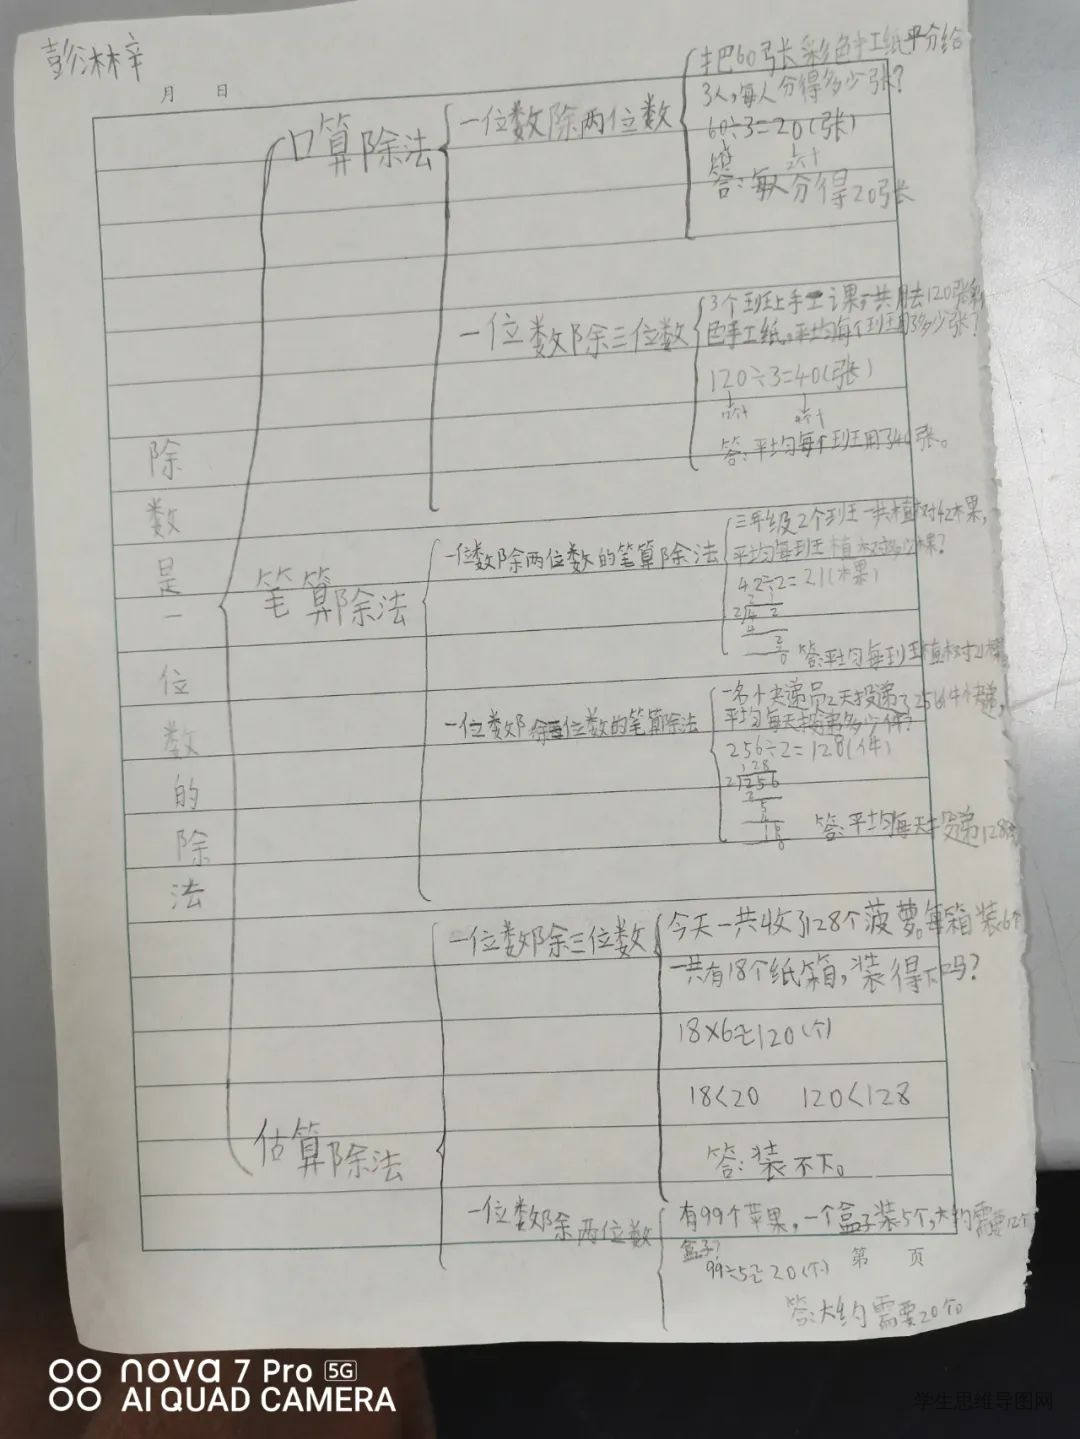 彭沐梓
月 日
除数是一位数的除法
口算除法
一位数除两位数
把60张彩色手工纸平分给
3人,每人分得多少张?
60÷3=20(张)
答:每人分得20张
一位数除三位数
3个班上手工课,一共用去120张彩
色手工纸。平均每个班用了多少张?
120÷3=40(张)
答:平均每个班用了40张。
笔算除法
一位数除两位数的笔算除法
三年级2个班一共植树42棵,
平均每班植树多少棵?
42÷2=21(棵)
2 1
2 4 2
4
2
0
答:平均每班植树21棵
一位数除三位数的笔算除法
一名快递员2天投递了256件快递,
平均每天投递多少件?
256÷2=128(件)
128
2 256
2
5
答:平均每天投递128
估算除法
一位数除三位数
今天一共收了128个菠萝。每箱装6个
一共有18个纸箱,装得下吗?
18×6≈120(个)
18<20 120<128
答:装不下。
一位数除两位数
有99个苹果,一个盒子装5个,大约需要12个
盒子?
99÷5≈20(个)
答:大约需要20个
第 页
nova 7 Pro 5G
AI QUAD CAMERA
学生思维导图网